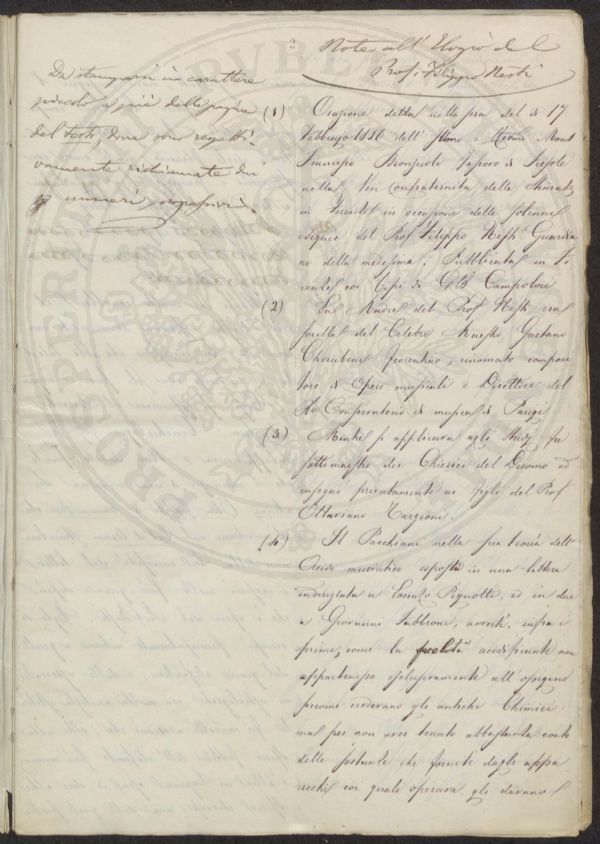 Note all' Elogio del
Prof. Filippo Nesti
Da stamparsi in carattere
piccolo a piè delle pagine
del testo, dove sono rispetti-
vamente richiamate dai
numeri
(1) Orazione detta nella sera del dì 17
Febbrajo 1846 dall' Illmo e Revmo Mons.
Francesco Bronzuoli Vescovo di Fiesole
nella Ven. Confraternita della
in Firenze in occasione delle solenni
esequie del Prof. Filippo Nesti Guardia-
no della medesima; Pubblicata in Fi-
renze coi Tipi di GB Campolmi
(2) La Madre del Prof Nesti era
sorella del Celebre Maestro Gaetano
Cherubini fiorentino, rinomato composi-
tore di Opere musicali e Direttore del
Conservatorio di musica di Parigi
(3) Mentre si applicava agli studj fu
fatto maestro dei Chierici del Duomo ed
insegnò privatamente ai figli del Prof
Ottaviano Targioni.
(4) Il Pacchiani nella sua teoria dell'
Acido muriatico esposta in una lettera
indirizzata a Lorenzo Pignotti, ed in due
a Giovanni Fabbroni, avvertì, infra i
primi, come la facoltà acidificante non
appartenesse esclusivamente all' ossigeno
siccome credevano gli antichi Chimici
ma per non aver tenuto abbastanza conto
delle sostanze che fornite dagli appa-
recchi coi quali operava gli davano